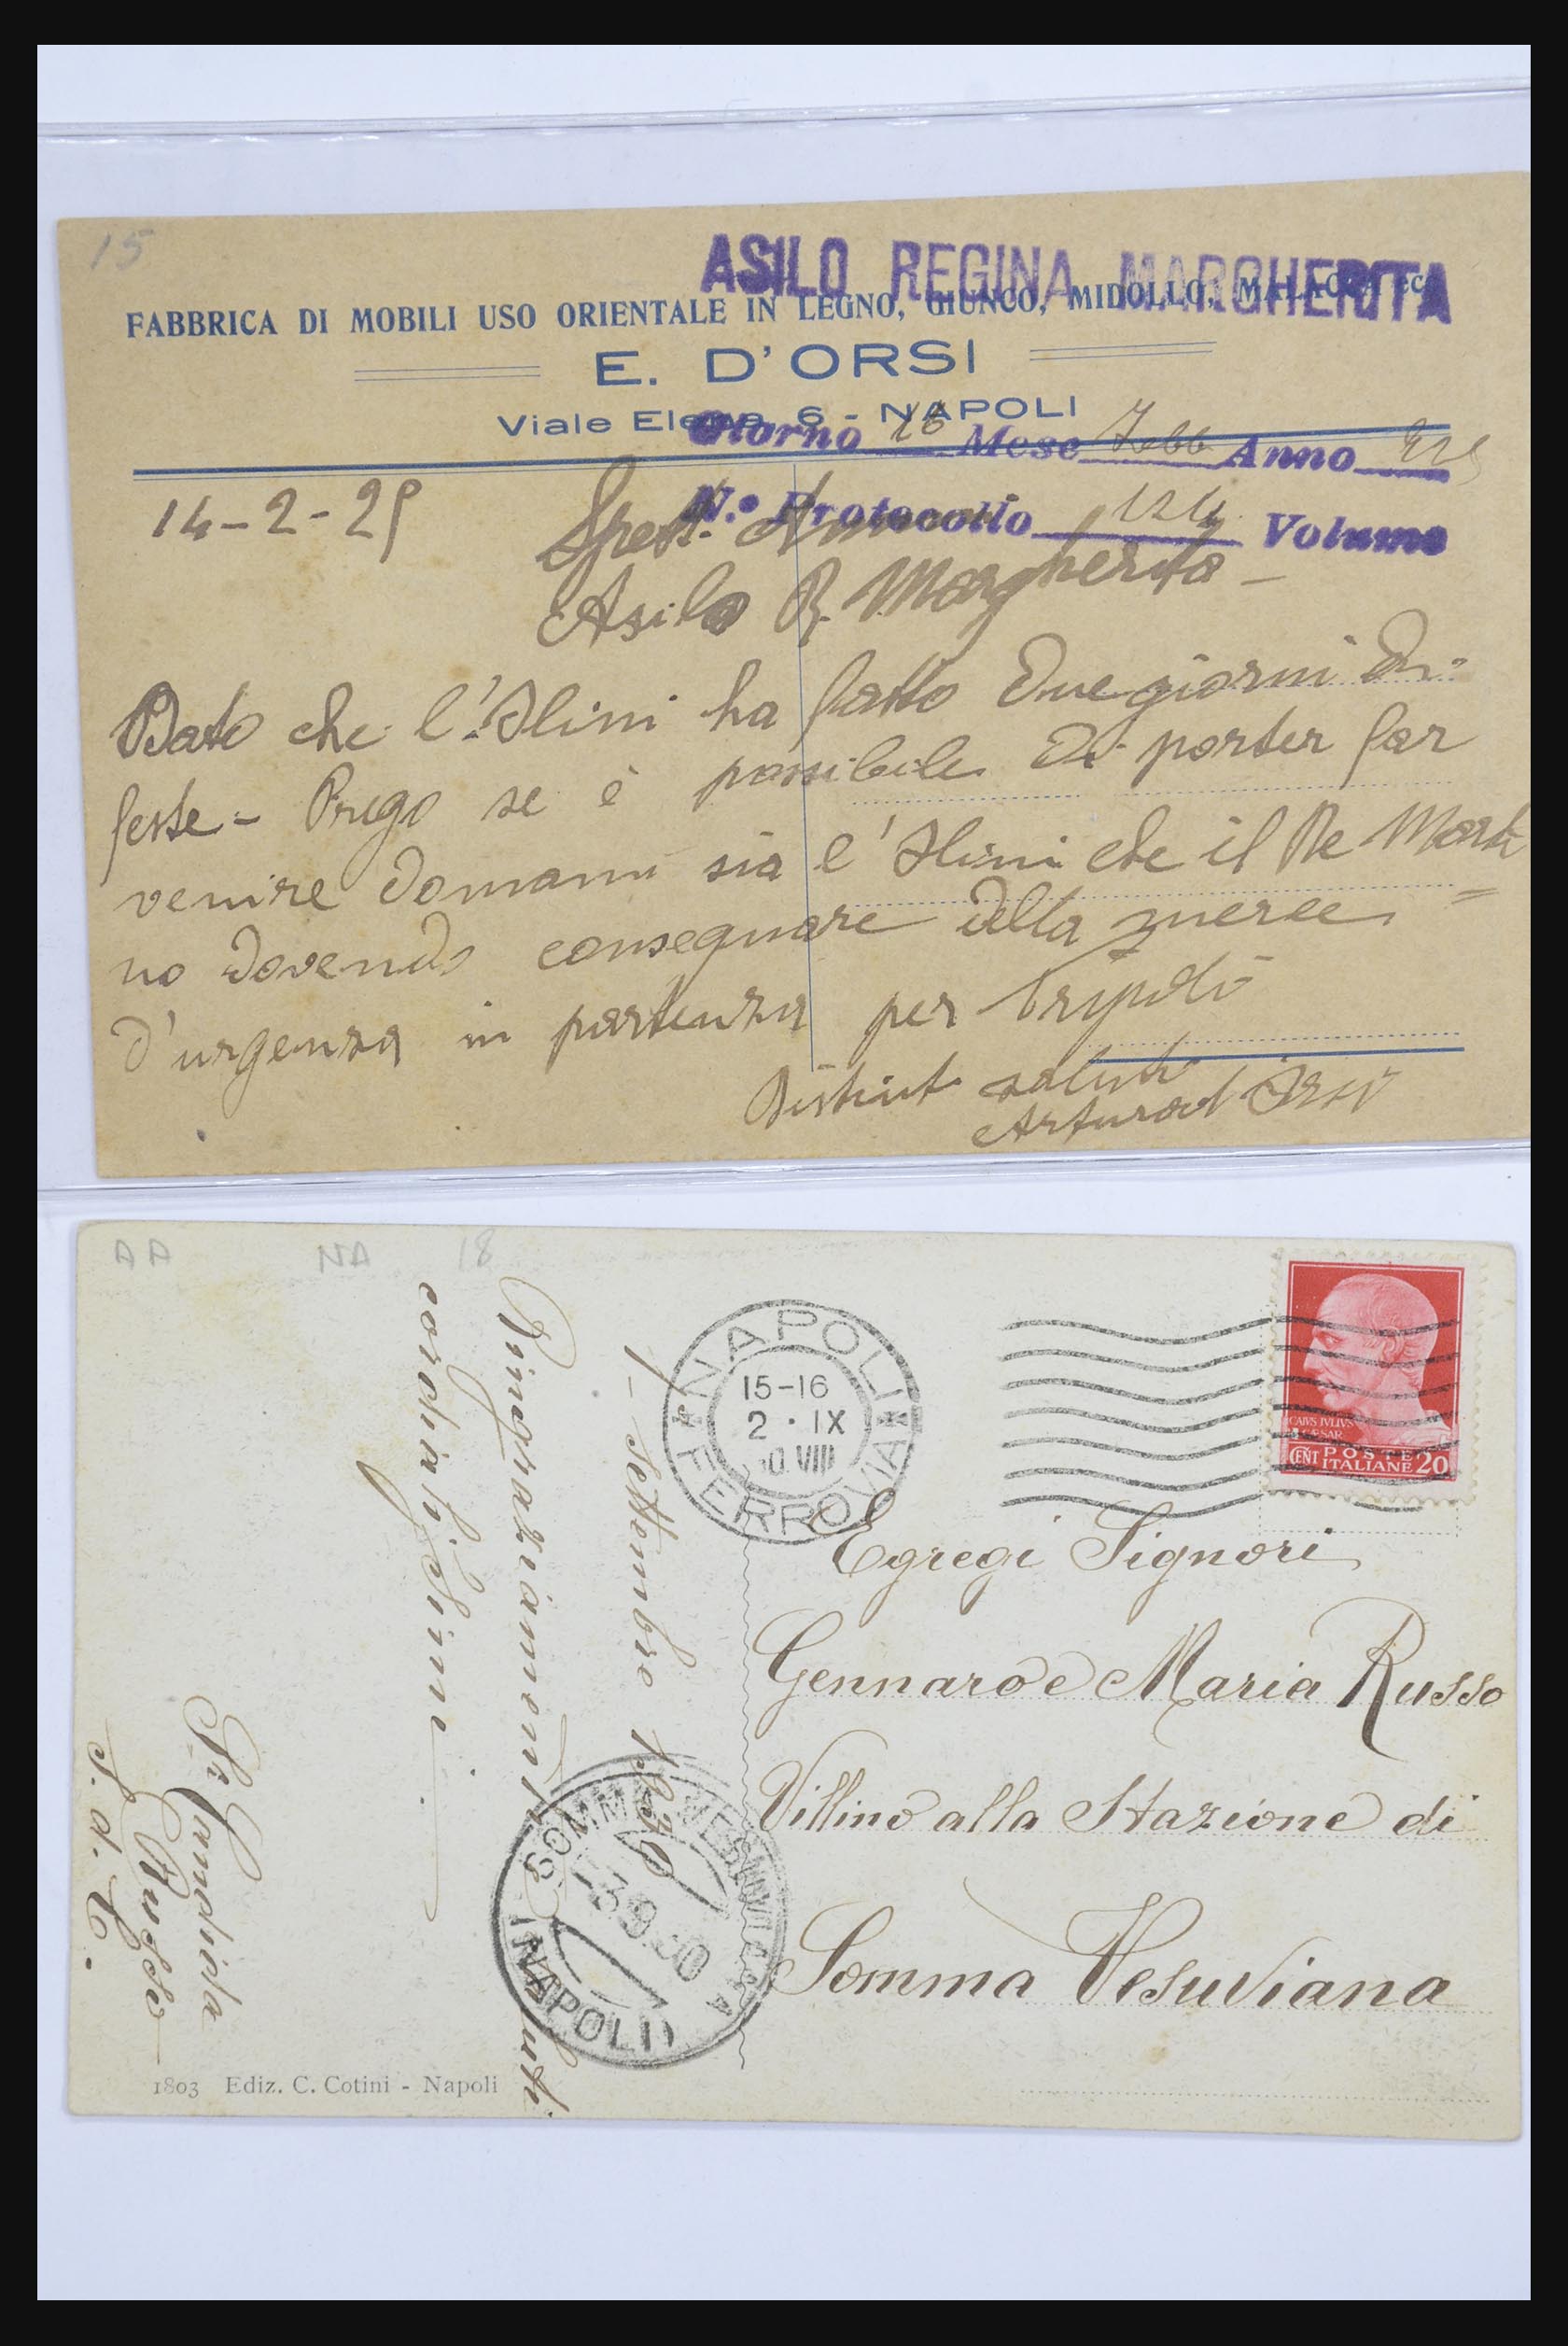 15
ASILO REGINA MARGHERITA
FABBRICA DI MOBILI USO ORIENTALE IN LEGNO, GIUNCO, MIDOLLO, MALACCA ecc.
E. D'ORSI
Viale Elena, 6 - NAPOLI
Giorno 16 Mese Febb Anno 925
N.º Protocollo Volume
14-2-25
Spett.
Asilo R. Margherita -
Dato che l' ha fatto due giorni di
feste - Prego se è possibile di porter far
venire domani sia l' che il De Marti
=
no dovendo consegnare della merce
d'urgenza in partenza per Tripoli
Distinti saluti
Arturo d'Orsi
AA NA 18
NAPOLI
15-16
2 · IX
30 VIII
FERROVIA
CAIVS IVLIVS
CAESAR
CENT POSTE
ITALIANE 20
Egregi Signori
Gennaro e Maria Russo
Villino alla Stazione di
Somma Vesuviana
1 - Settembre 1930
Ringraziamenti e saluti
cordialissimi
Russo
S. d. C.
SOMMA VESUVIANA
-3.9.30
(NAPOLI)
1803 Ediz. C. Cotini - Napoli